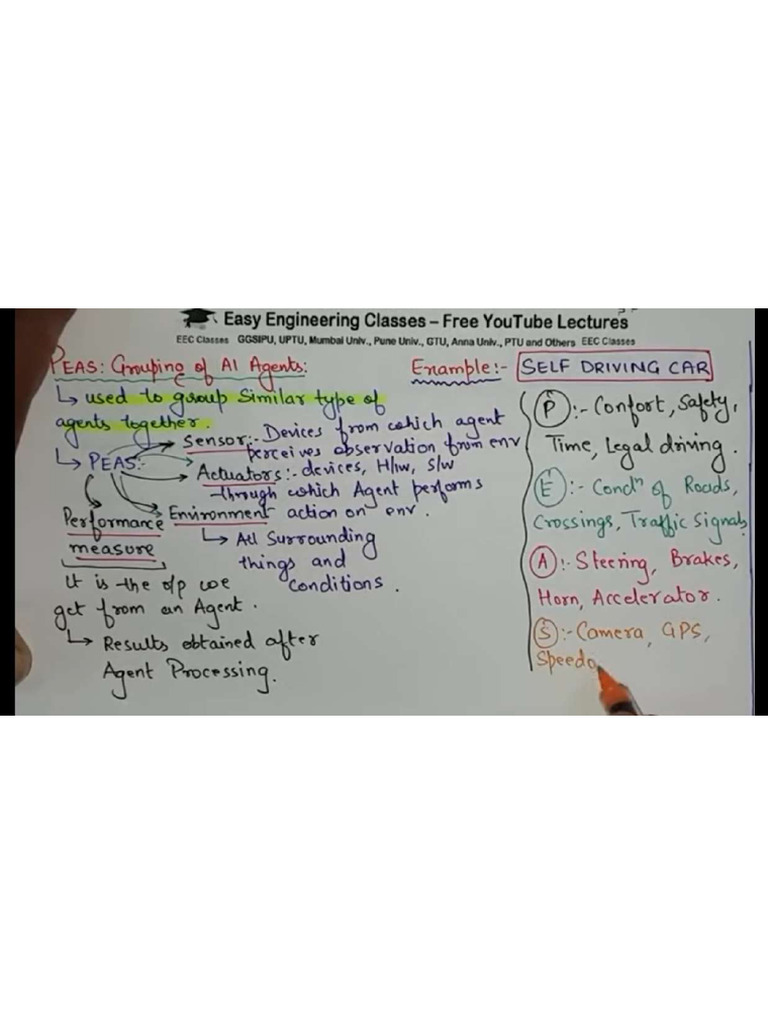 Easy Engineering Classes – Free YouTube Lectures
EEC Classes GGSIPU, UPTU, Mumbai Univ., Pune Univ., GTU, Anna Univ., PTU and Others EEC Classes
PEAS: Grouping of AI Agents:
↳ used to group similar type of
agents together.
↳ PEAS:-
Sensor:- Devices from which agent
perceives observation from env
Actuators:- devices, H/w, S/w
through which Agent performs
action on env.
Environment
↳ All Surrounding
things and
conditions.
Performance
measure
It is the o/p we
get from an Agent.
↳ Results obtained after
Agent Processing.
Example:- SELF DRIVING CAR
P:- Confort, Safety,
Time, Legal driving.
E:- Condn of Roads,
Crossings, Traffic Signals
A:- Steering, Brakes,
Horn, Accelerator.
S:- Camera, GPS,
Speedo